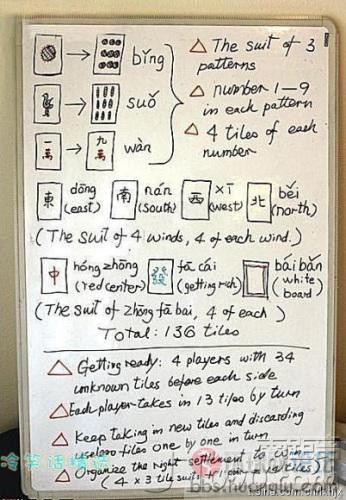 bǐng
suǒ
一萬 九萬 wàn
△ The suit of 3 patterns
△ number 1—9 in each pattern
△ 4 tiles of each number
東 dōng (east) 南 nán (south) 西 xī (west) 北 běi (north)
(The suit of 4 winds, 4 of each wind.)
中 hóng zhōng (red center) 發 fā cái (getting rich) bái bǎn (white board)
(The suit of zhōng fā bai, 4 of each)
Total: 136 tiles
△ Getting ready: 4 players with 34
unknown tiles before each side
△ Each player takes in 13 tiles by turn
△ Keep taking in new tiles and discarding
useless tiles one by one in turn
△ Organize the right settlement to win
(4 x 3 tile suits
冷笑话精选